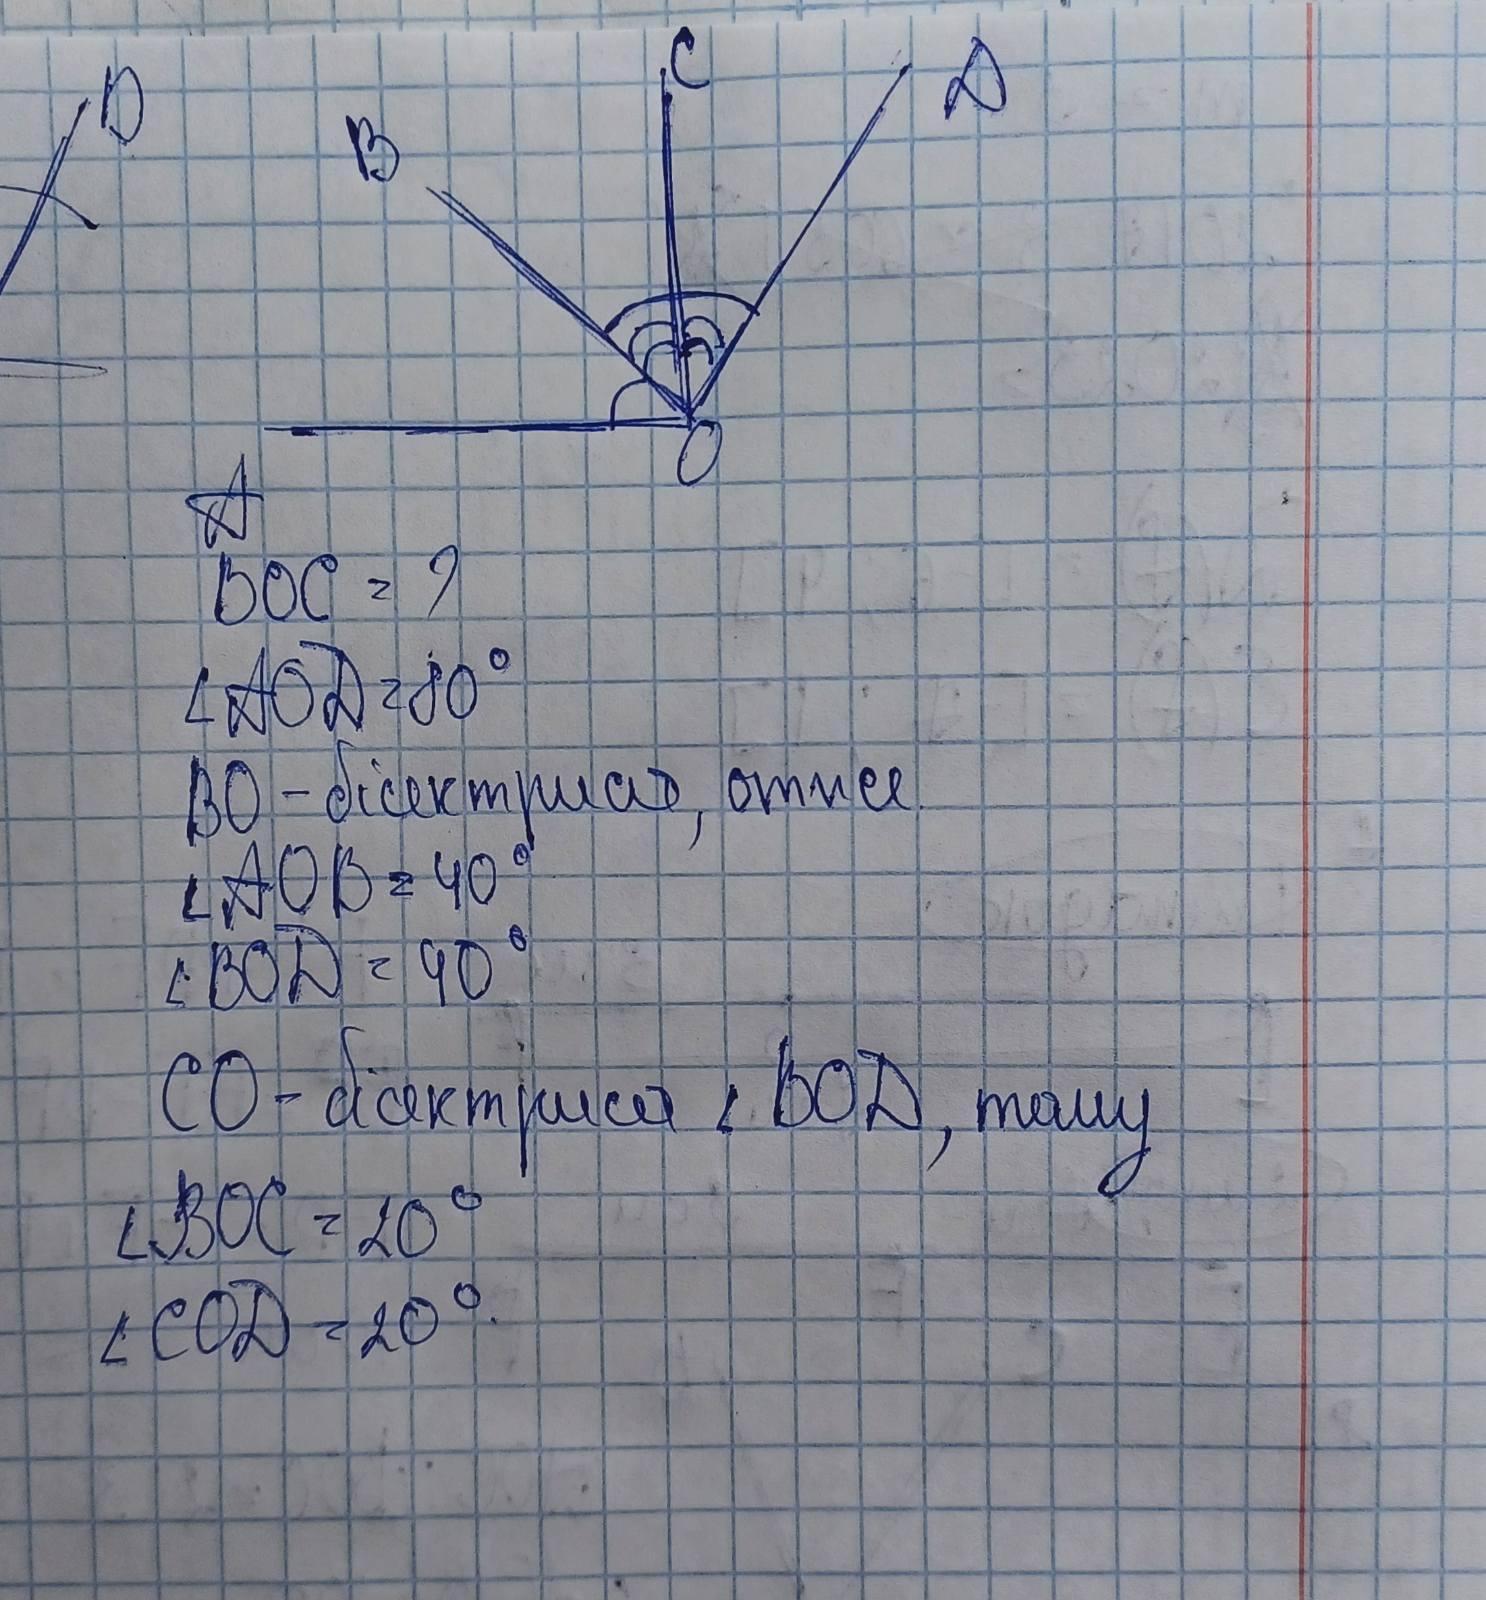 D
C
D
B
O
A
BOC = ?
∠AOD = 80°
BO - бісектриса, отже
∠AOB = 40°
∠BOD = 40°
CO - бісектриса ∠BOD, тому
∠BOC = 20°
∠COD = 20°.